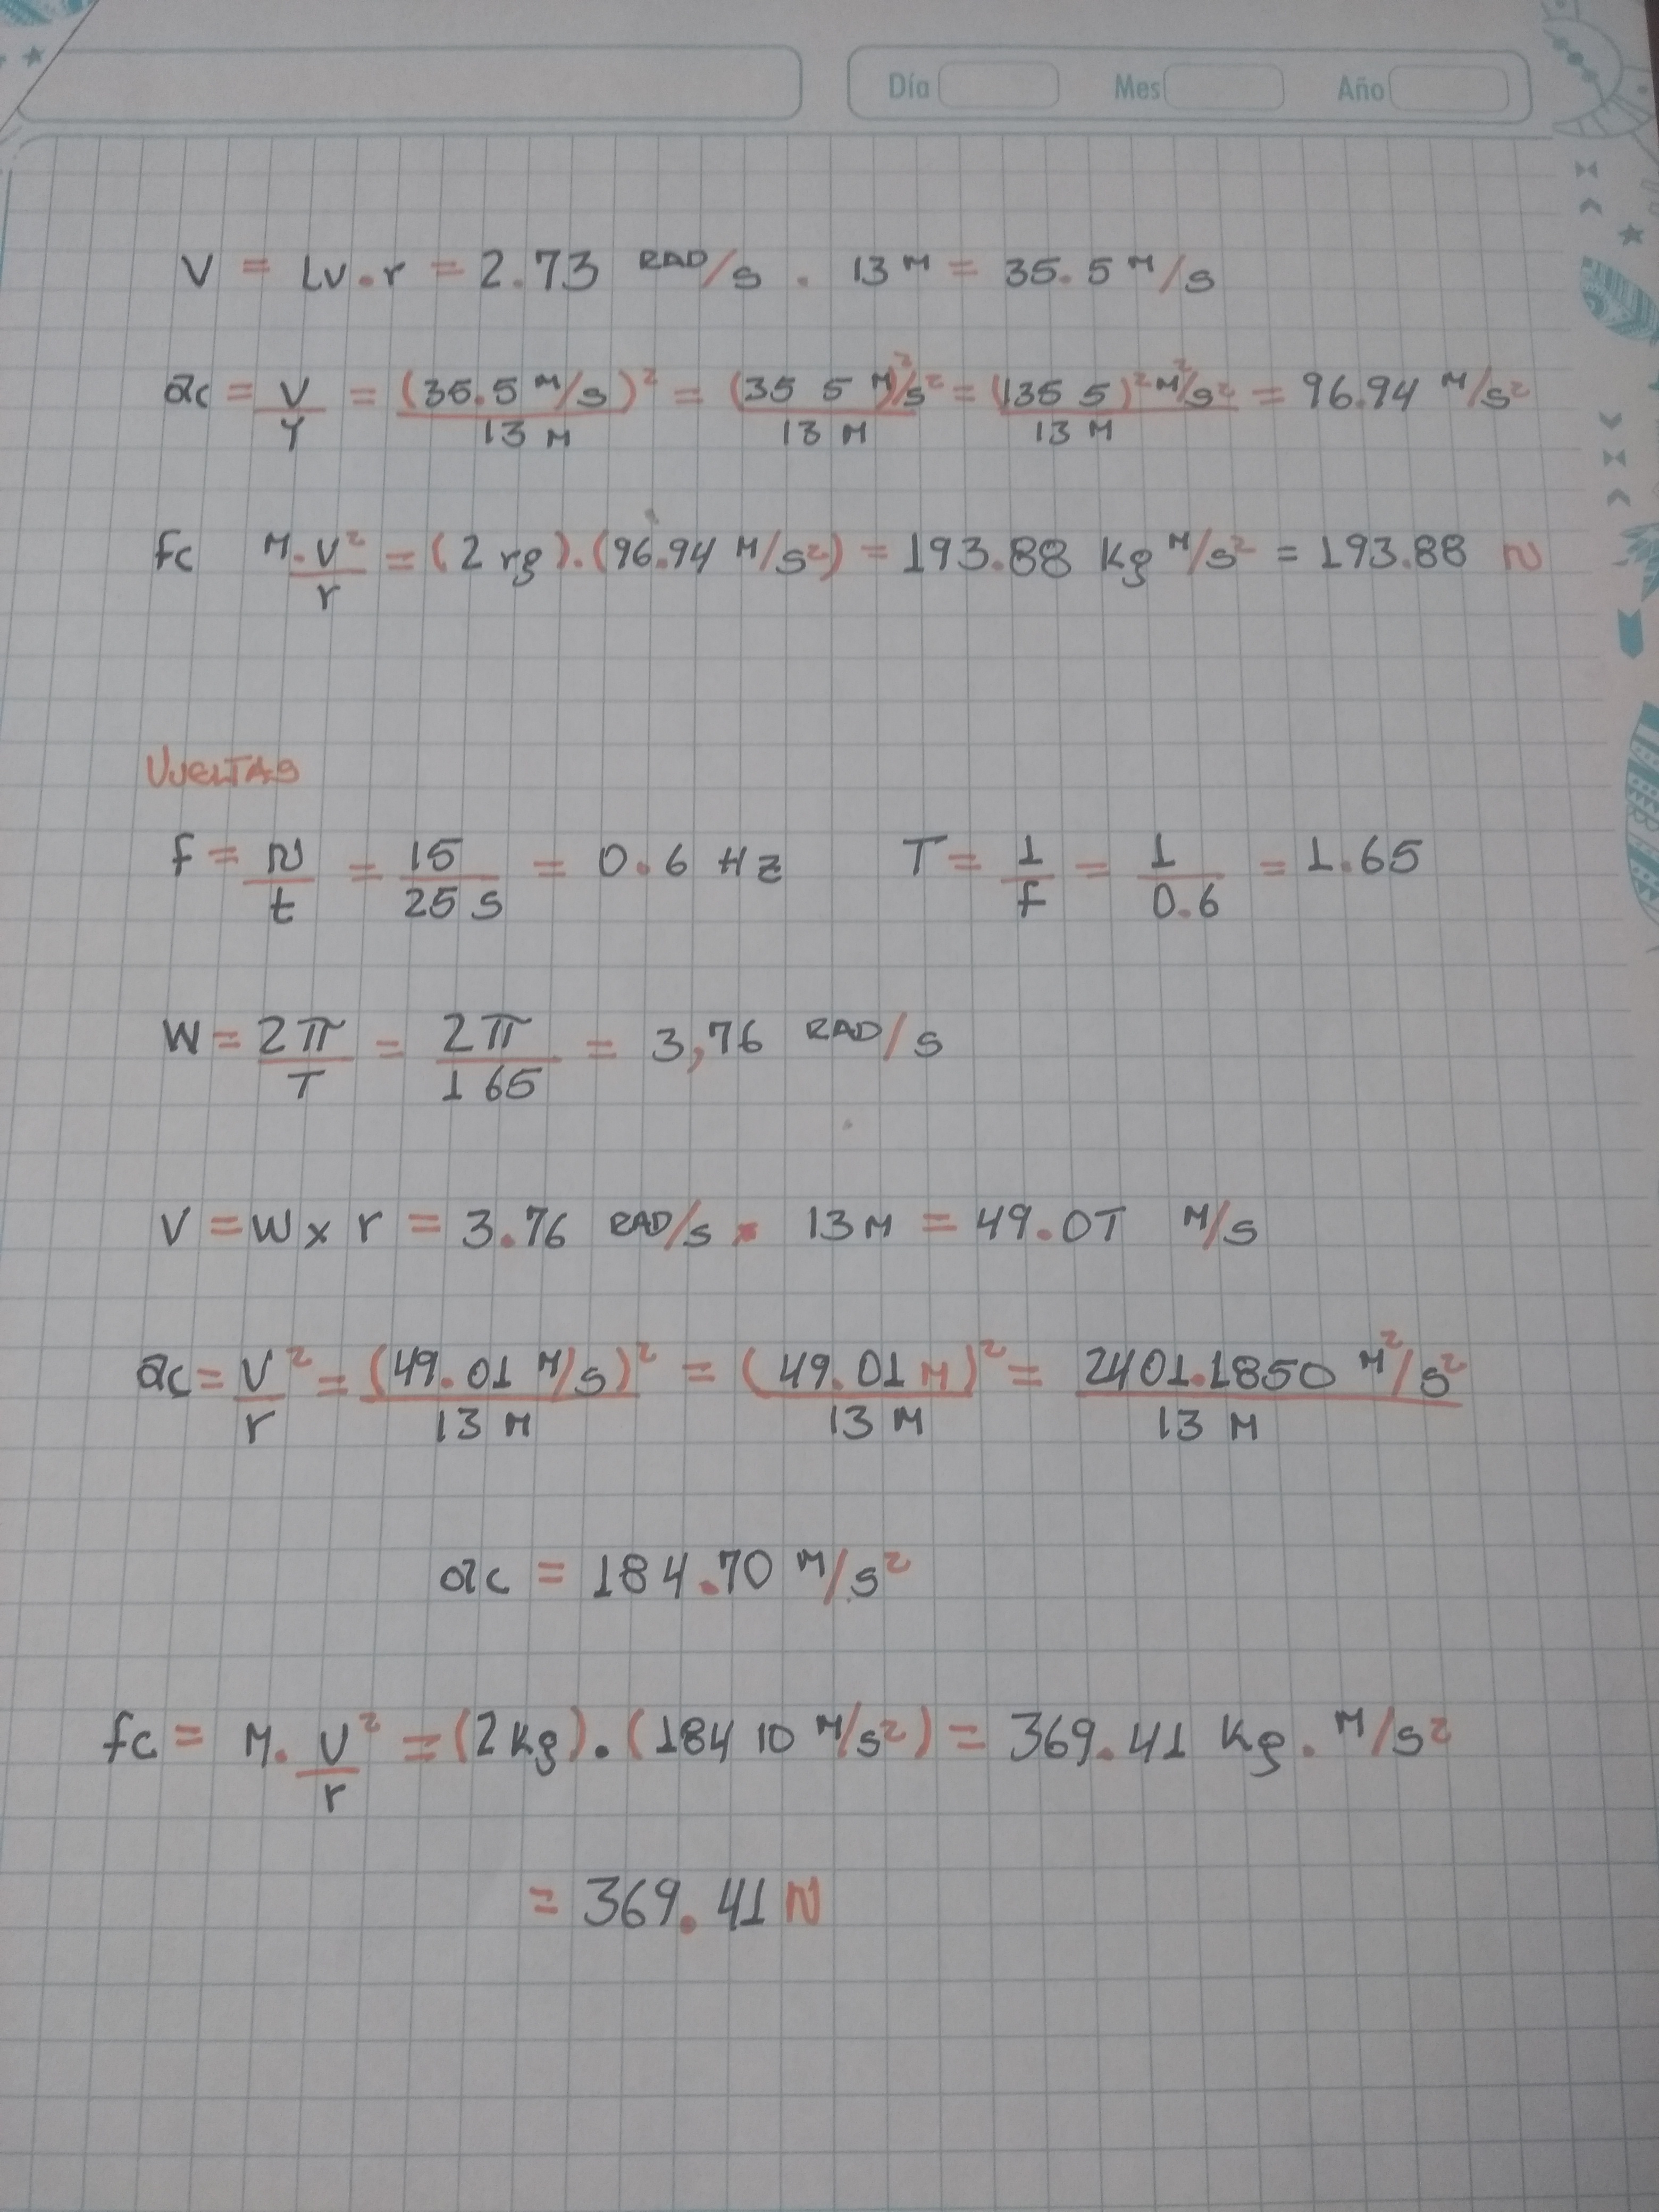 Día Mes Año
V = Lv.r = 2.73 RAD/s . 13 M = 35.5 M/s
ac = V/r = (35.5 M/s)²/13 M = (35 5 M)²/s²/13 M = (135 5)² M²/s²/13 M = 96.94 M/s²
fc M.v²/r = (2 rg).(96.94 M/s²) = 193.88 Kg M/s² = 193.88 N
VUELTAS
f = N/t = 15/25 s = 0.6 Hz T = 1/f = 1/0.6 = 1.65
W = 2π/T = 2π/1 65 = 3,76 RAD/s
V = W x r = 3.76 RAD/s . 13 M = 49.0T M/s
ac = V²/r = (49.01 M/s)²/13 M = (49.01 M)²/13 M = 2401.1850 M²/s²/13 M
ac = 184.70 M/s²
fc = M. V²/r = (2 Kg).(184 10 M/s²) = 369.41 Kg. M/s²
= 369.41 N